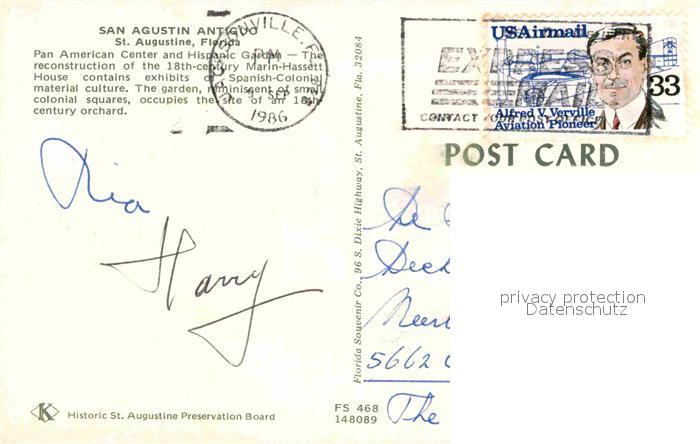 SAN AGUSTIN ANTIGUO
St. Augustine, Florida
Pan American Center and Hispanic Garden — The
reconstruction of the 18th-century Marin-Hassett
House contains exhibits of Spanish-Colonial
material culture. The garden, reminiscent of small
colonial squares, occupies the site of an 18th
century orchard.
PM
SEP
1986
EXPRESS
MAIL
CONTACT YOUR POST OFFICE
USAirmail
33
Alfred V. Verville
Aviation Pioneer
POST CARD
Ria
Harry
Florida Souvenir Co., 96 S. Dixie Highway, St. Augustine, Fla. 32084
De
5662
The
privacy protection
Datenschutz
K
Historic St. Augustine Preservation Board
FS 468
148089